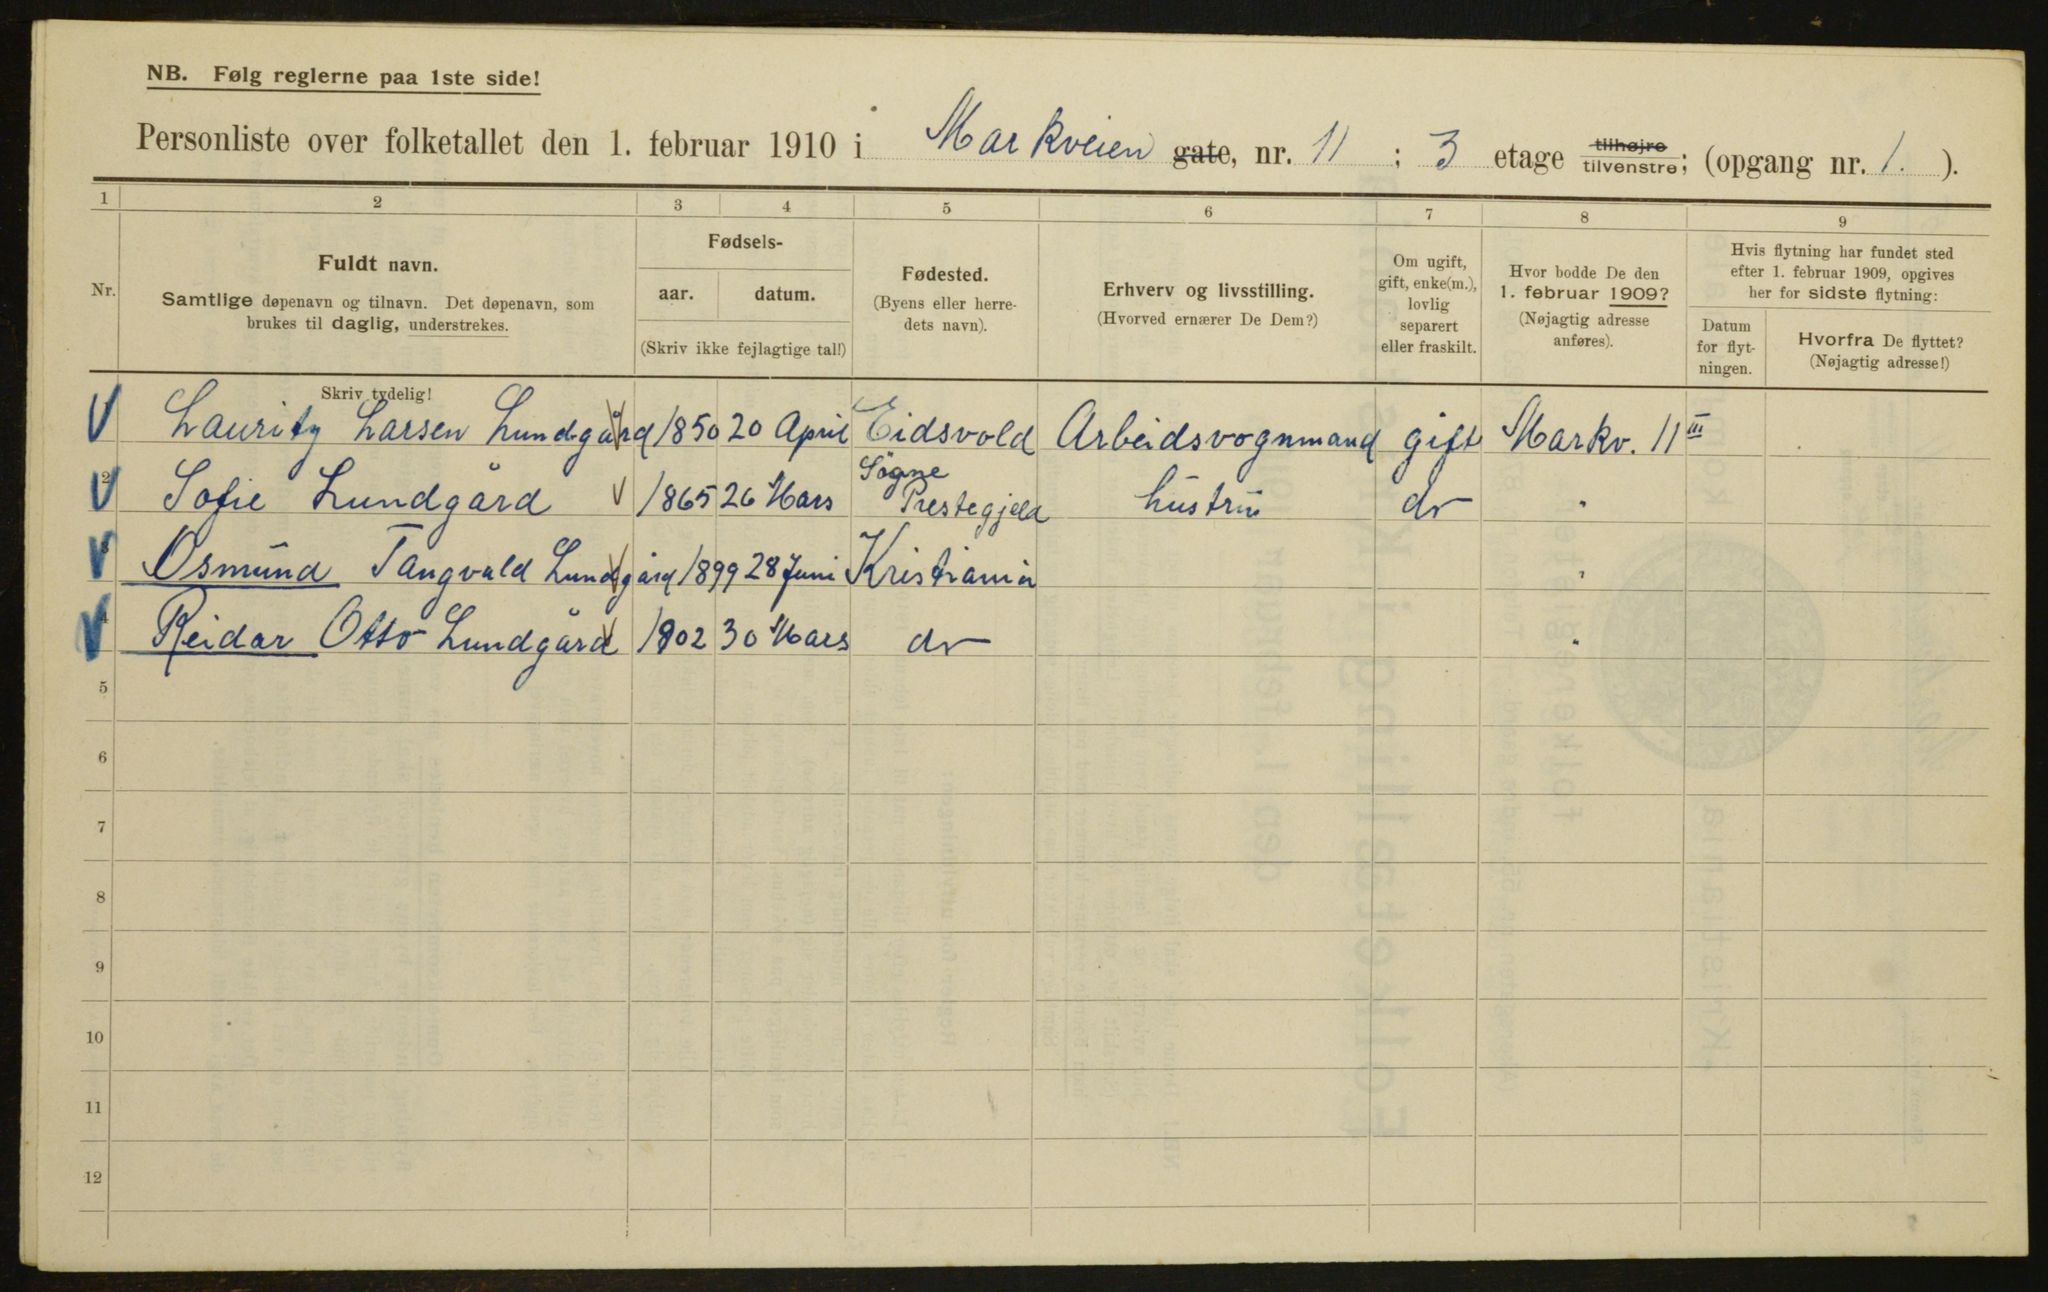 NB. Følg reglerne paa 1ste side!
Personliste over folketallet den 1. februar 1910 i Markveien gate, nr. 11 ; 3 etage tilhøjre tilvenstre; (opgang nr. 1. ).
1 2 3 4 5 6 7 8 9
Nr.
Fuldt navn.
Samtlige døpenavn og tilnavn. Det døpenavn, som
brukes til daglig, understrekes.
Fødsels-
aar. datum.
(Skriv ikke fejlagtige tal!)
Fødested.
(Byens eller herre-
dets navn).
Erhverv og livsstilling.
(Hvorved ernærer De Dem?)
Om ugift,
gift, enke(m.),
lovlig
separert
eller fraskilt.
Hvor bodde De den
1. februar 1909?
(Nøjagtig adresse
anføres).
Hvis flytning har fundet sted
efter 1. februar 1909, opgives
her for sidste flytning:
Datum
for flyt-
ningen.
Hvorfra De flyttet?
(Nøjagtig adresse!)
Skriv tydelig!
Lauritz Larsen Lundgård 1850 20 April Eidsvold Arbeidsvognmand gift Markv. 11 III
2 Sofie Lundgård 1865 26 Mars Søgne Prestegjeld hustru do "
3 Osmund Tangvald Lundgård 1899 28 Juni Kristiania "
4 Reidar Otto Lundgård 1902 30 Mars do "
5
6
7
8
9
10
11
12